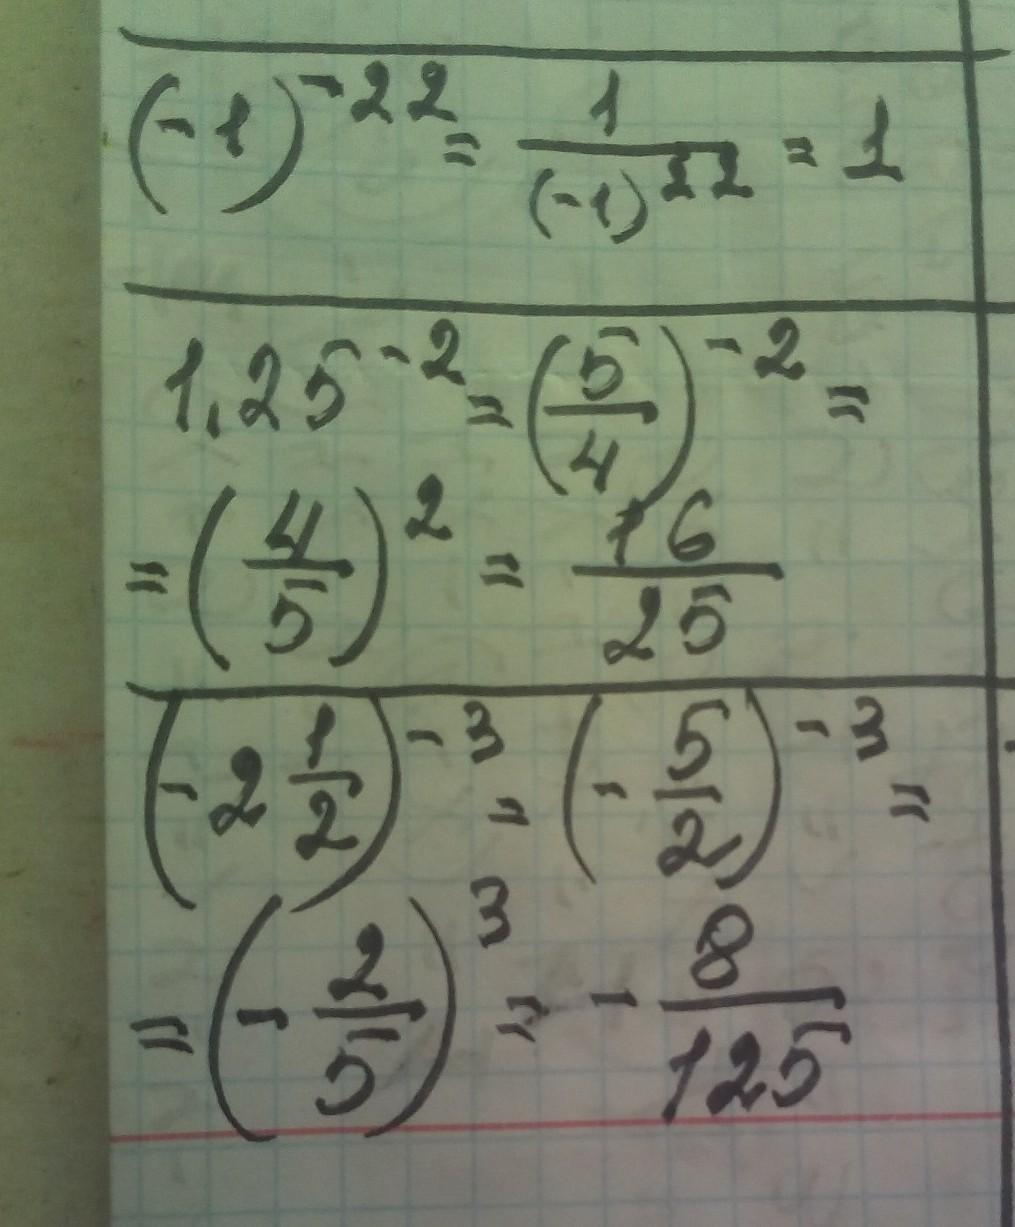 (-1)^{-22} = \frac{1}{(-1)^{22}} = 1
1,25^{-2} = \left(\frac{5}{4}\right)^{-2} =
= \left(\frac{4}{5}\right)^{2} = \frac{16}{25}
\left(-2\frac{1}{2}\right)^{-3} = \left(-\frac{5}{2}\right)^{-3} =
= \left(-\frac{2}{5}\right)^{3} = -\frac{8}{125}